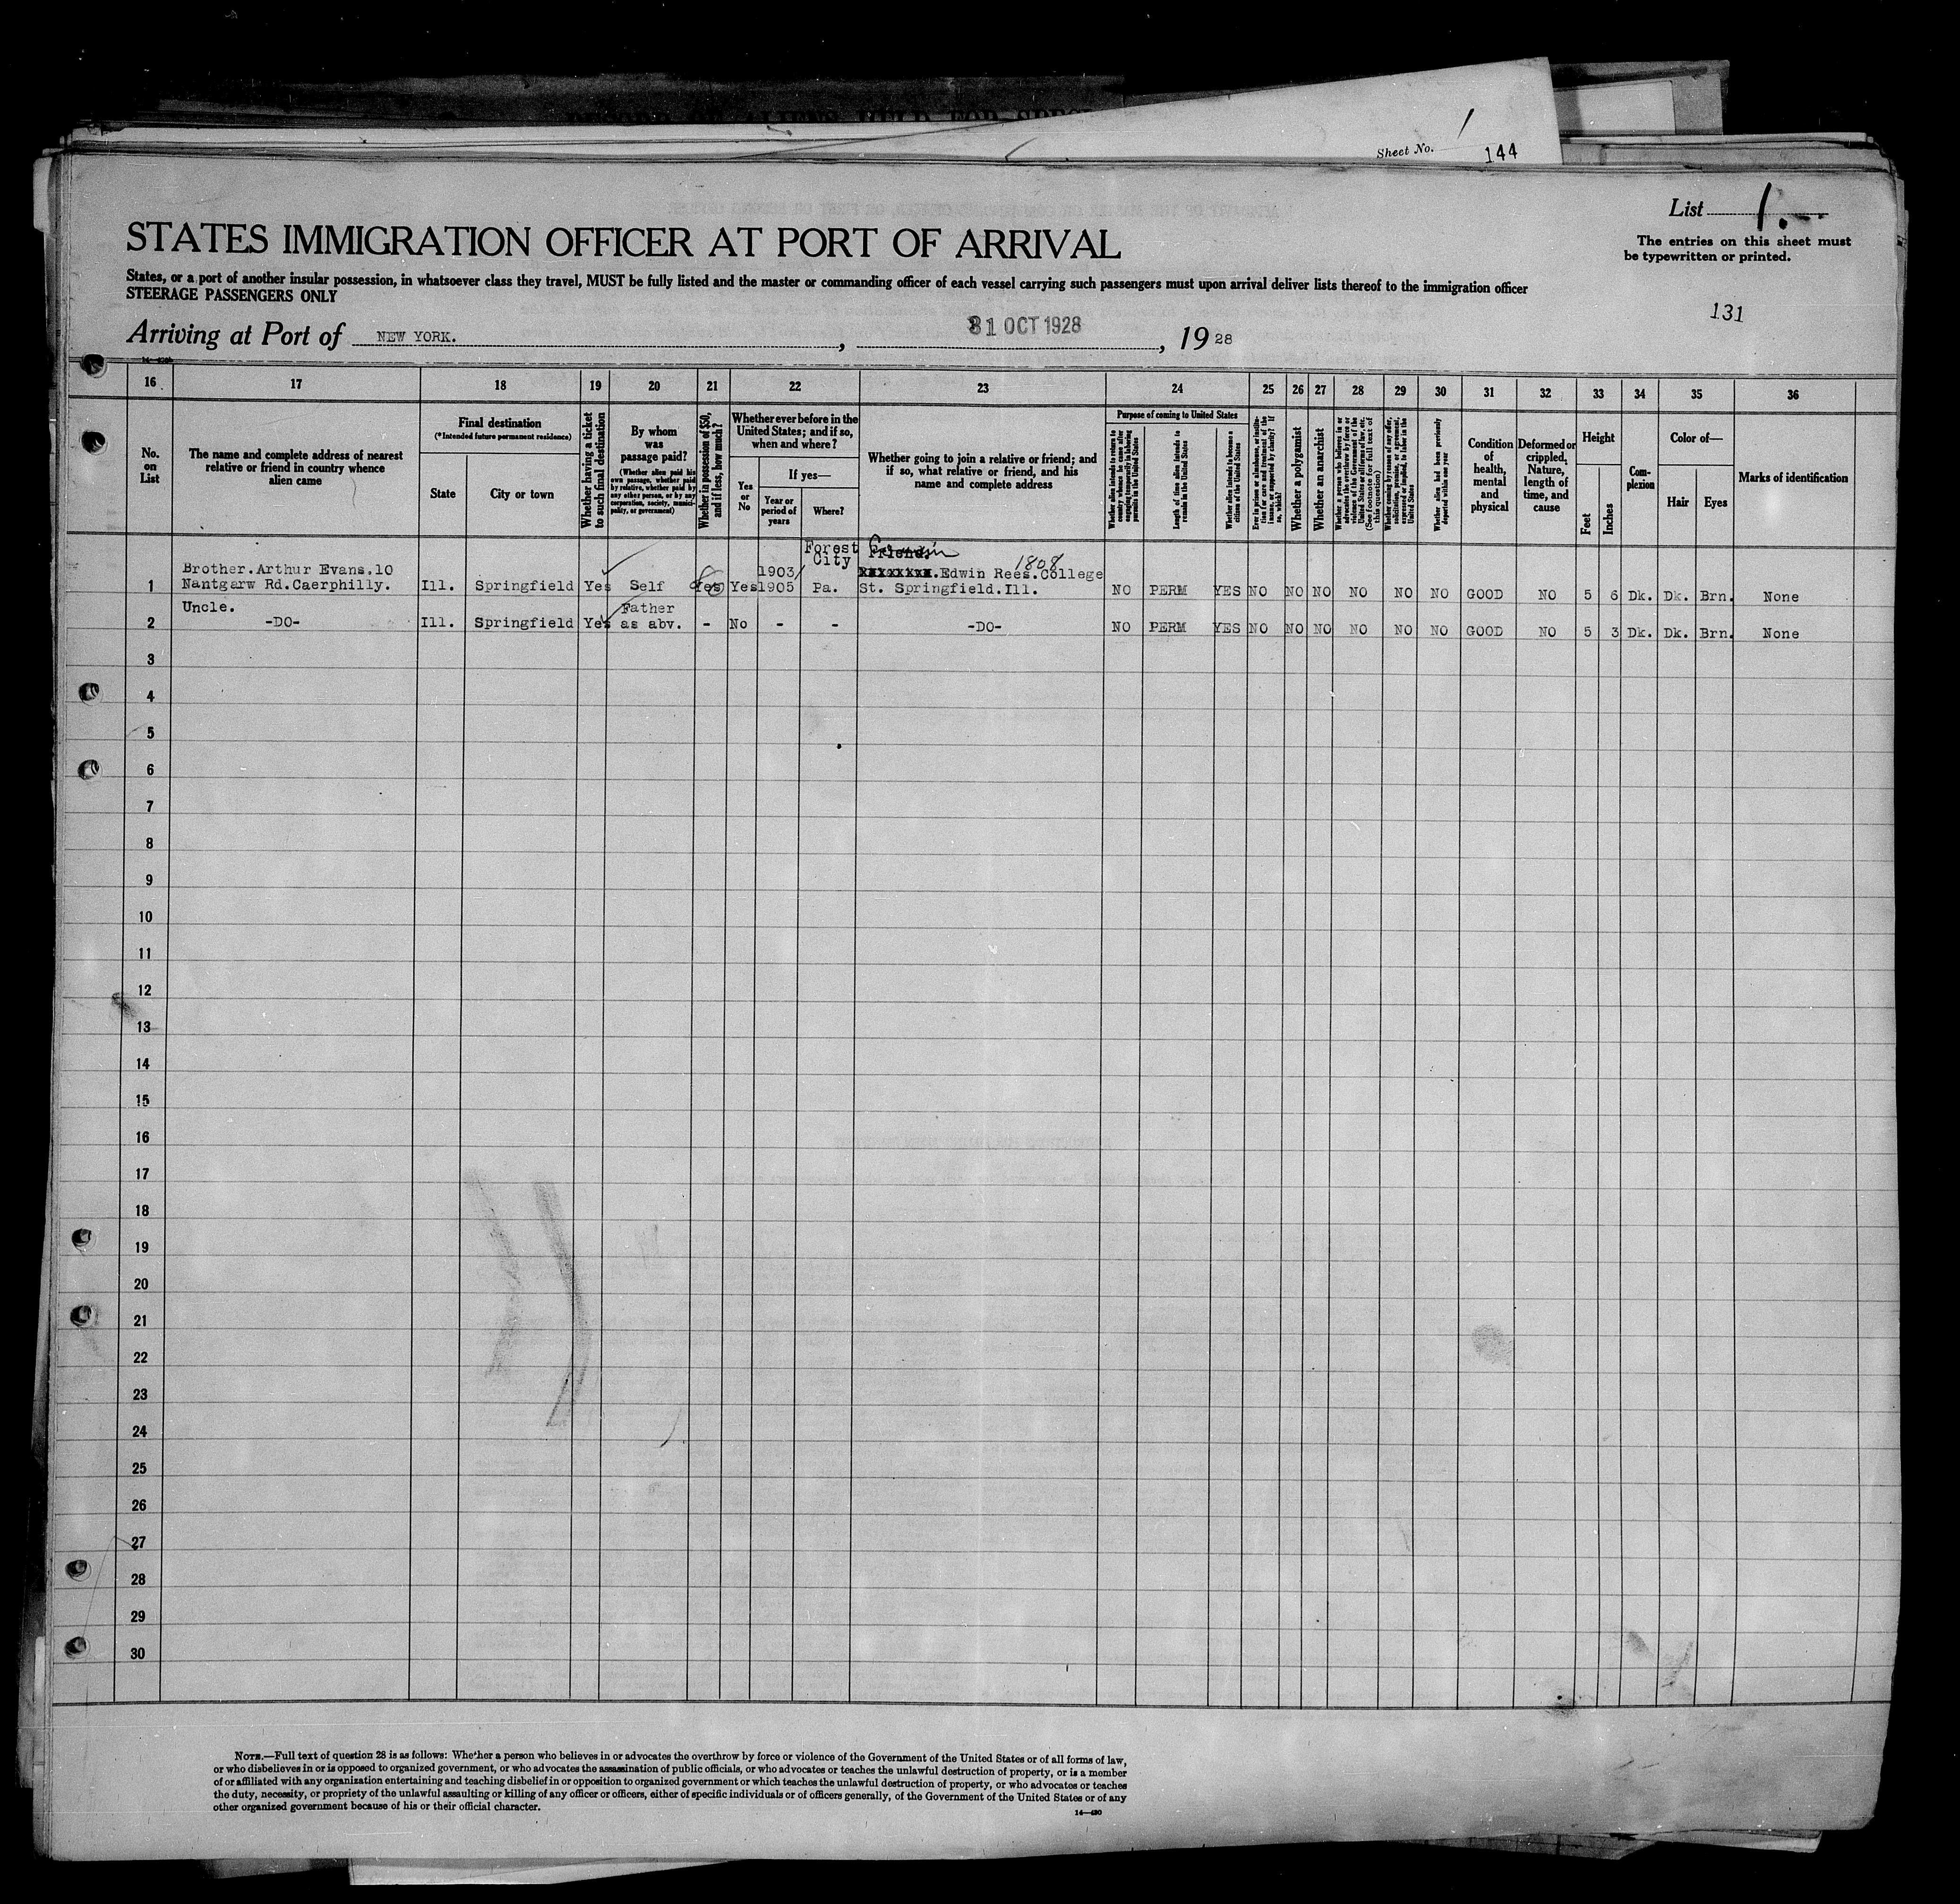 Sheet No. 1
144
List 1.
The entries on this sheet must
be typewritten or printed.
STATES IMMIGRATION OFFICER AT PORT OF ARRIVAL
States, or a port of another insular possession, in whatsoever class they travel, MUST be fully listed and the master or commanding officer of each vessel carrying such passengers must upon arrival deliver lists thereof to the immigration officer
STEERAGE PASSENGERS ONLY
131
Arriving at Port of NEW YORK. , 31 OCT 1928 , 19 28
16 17 18 19 20 21 22 23 24 25 26 27 28 29 30 31 32 33 34 35 36
No.
on
List
The name and complete address of nearest
relative or friend in country whence
alien came
Final destination
(*Intended future permanent residence)
State
City or town
Whether having a ticket
to such final destination
By whom
was
passage paid?
(Whether alien paid his
own passage, whether paid
by relative, whether paid by
any other person, or by any
corporation, society, munici-
pality, or government)
Whether in possession of $50,
and if less, how much?
Whether ever before in the
United States; and if so,
when and where?
Yes
or
No
If yes—
Year or
period of
years
Where?
Whether going to join a relative or friend; and
if so, what relative or friend, and his
name and complete address
Purpose of coming to United States
Whether alien intends to return to
country whence he came after
engaging temporarily in laboring
pursuits in the United States
Length of time alien intends to
remain in the United States
Whether alien intends to become a
citizen of the United States
Ever in prison or almshouse, or institu-
tion for care and treatment of the
insane, or supported by charity? If
so, which?
Whether a polygamist
Whether an anarchist
Whether a person who believes in or
advocates the overthrow by force or
violence of the Government of the
United States or all forms of law, etc.
(See footnote for full text of
this question)
Whether coming by reason of any offer,
solicitation, promise, or agreement,
expressed or implied, to labor in the
United States
Whether alien had been previously
deported within one year
Condition
of
health,
mental
and
physical
Deformed or
crippled,
Nature,
length of
time, and
cause
Height
Feet
Inches
Com-
plexion
Color of—
Hair
Eyes
Marks of identification
Forest Cousin
City Friend. 1808
Brother.Arthur Evans.10 1903/ .Edwin Rees.College
1 Nantgarw Rd.Caerphilly. Ill. Springfield Yes Self Yes Yes 1905 Pa. St. Springfield.Ill. NO PERM YES NO NO NO NO NO NO GOOD NO 5 6 Dk. Dk. Brn. None
Uncle. Father
2 -DO- Ill. Springfield Yes as abv. - No - - -DO- NO PERM YES NO NO NO NO NO NO GOOD NO 5 3 Dk. Dk. Brn. None
3
4
5
6
7
8
9
10
11
12
13
14
15
16
17
18
19
20
21
22
23
24
25
26
27
28
29
30
NOTE.—Full text of question 28 is as follows: Whether a person who believes in or advocates the overthrow by force or violence of the Government of the United States or of all forms of law,
or who disbelieves in or is opposed to organized government, or who advocates the assassination of public officials, or who advocates or teaches the unlawful destruction of property, or is a member
of or affiliated with any organization entertaining and teaching disbelief in or opposition to organized government or which teaches the unlawful destruction of property, or who advocates or teaches
the duty, necessity, or propriety of the unlawful assaulting or killing of any officer or officers, either of specific individuals or of officers generally, of the Government of the United States or of any
other organized government because of his or their official character.
14—430